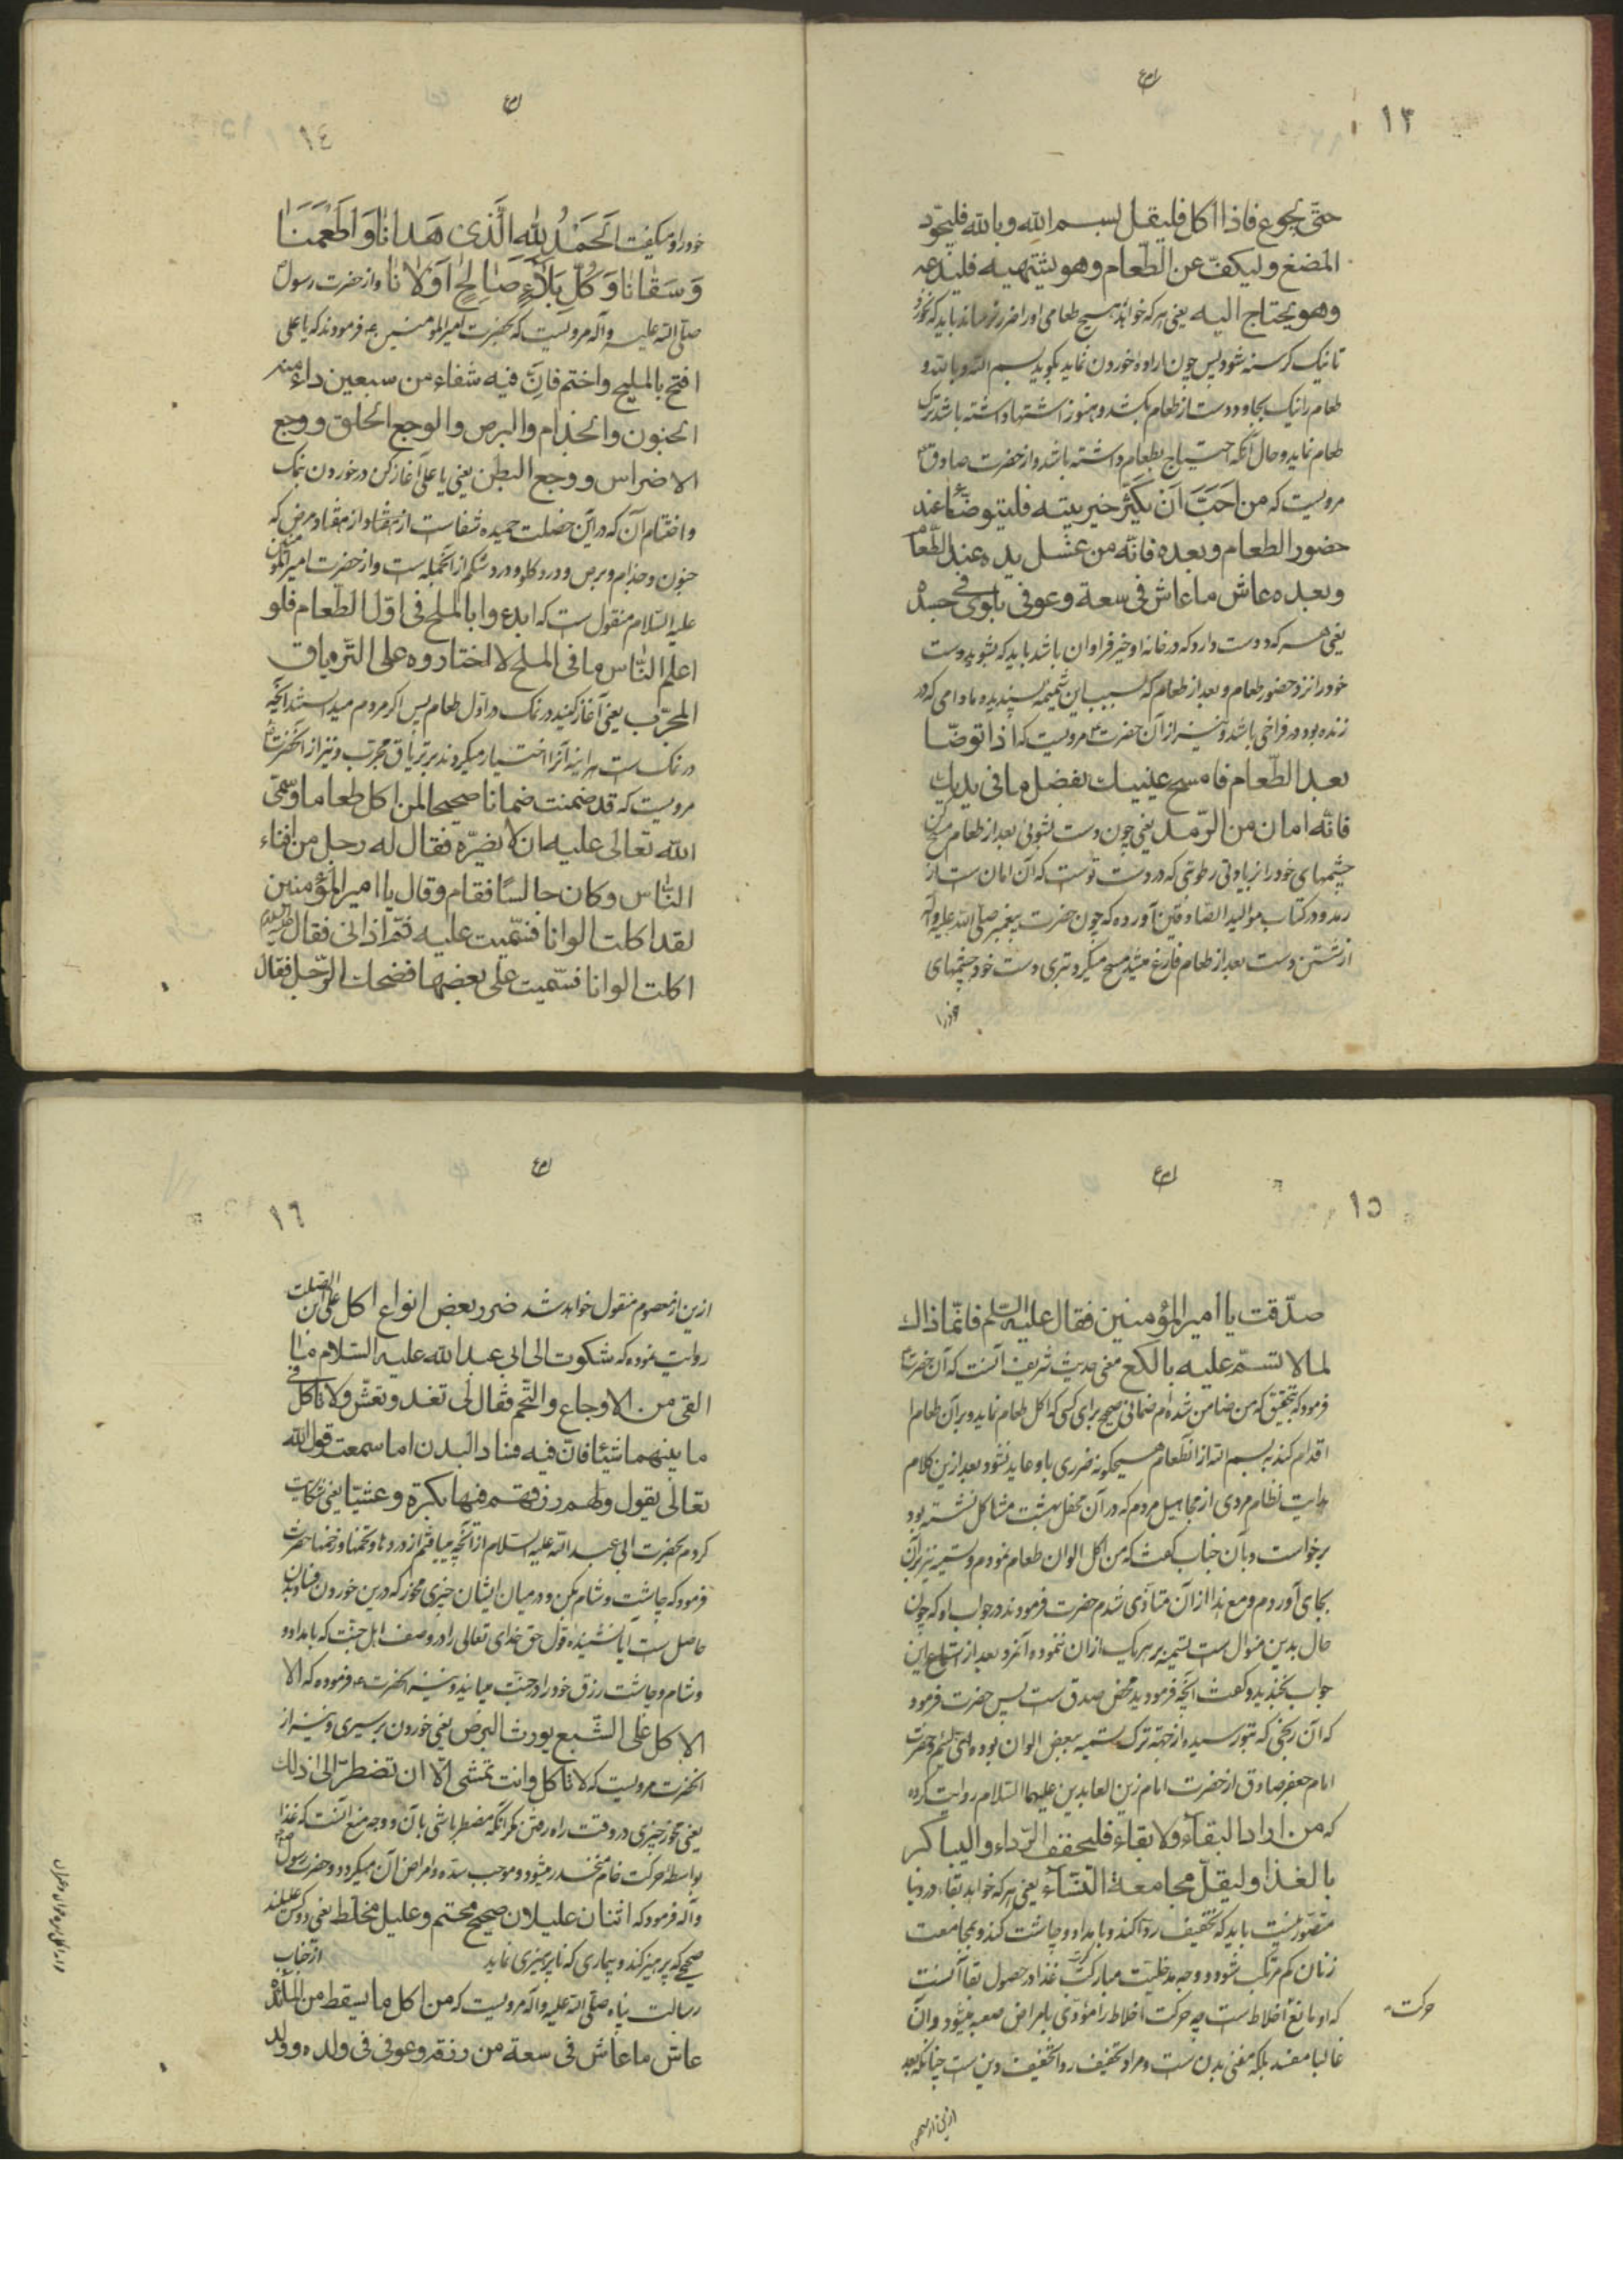 ١٣
حتّی یجوع فاذا اکل فلیقل بسم الله وبالله فلیجوّد
المضغ ولیکفّ عن الطّعام وهو یشتهیه فلیدعه
وهو یحتاج الیه یعنی هر که خواهد هیچ طعامی اورا ضرر نرساند باید که نخورد
تا نیک کرسنه شود پس چون اراده خوردن نماید بکوید بسم الله وبالله و
طعام را نیک بجاود و دست از طعام بکشد و هنوز اشتها داشته باشد ترک
طعام نماید و حال آنکه احتیاج بطعام داشته باشد و از حضرت صادق
مرویست که من احبّ ان یکثر خیر بیته فلیتوضّأ عند
حضور الطعام وبعده فانّه من غسل یده عند الطّعام
وبعده عاش ما عاش فی سعة وعوفی من بلوی فی جسده
یعنی هر که دوست دارد که در خانه او خیر فراوان باشد باید که بشوید دست
خود را نزد حضور طعام و بعد از طعام که بسبب این شیمه پسندیده مادامی که در
زنده بود در فراخی باشد و نیز از آن حضرت مرویست که اذا توضّا
بعد الطّعام فامسح عینیک بفضل ما فی یدیک
فانّه امان من الرّمد یعنی چون دست بشوئی بعد از طعام مسح کن
چشمهای خود را از زیادتی رطوبتی که در دست توست که آن امان است از
رمد و در کتاب موالید الصّادقین آورده که چون حضرت پیغمبر صلی الله علیه وآله
از شستن دست بعد از طعام فارغ میشد مسح میکرد بتری دست خود چشمهای
خودرا
١٤
خود را و میکفت اَلحَمْدُ لِلّهِ الَّذی هَدانا وَاَطْعَمَنا
وَسَقانا وَکُلَّ بَلاءٍ صالِحٍ اَوْلانا و از حضرت رسول
صلّی الله علیه وآله مرویست که بحضرت امیرالمومنین ع فرمودند که یا علی
افتح بالملح واختم فانّ فیه شفاء من سبعین داء منه
الجنون والجذام والبرص والوجع الحلق ووجع
الاضراس ووجع البطن یعنی یا علی آغاز کن در خوردن بنمک
و اختتام آن که در این خصلت حمیده شفاست از هفتاد مرض که
جنون و جذام و برص و درد کلو و درد شکم از آنجمله است و از حضرت امیرالمومنین
علیه السلام منقول است که ابدءوا بالملح فی اوّل الطّعام فلو
اعلم النّاس ما فی الملح لاختاروه علی التّریاق
المجرّب یعنی آغاز کنید در نمک در اوّل طعام پس اکر مردم میدانستند آنچه
در نمک است هراینه آنرا اختیار میکردند بر تریاق مجرّب و نیز از آنحضرت
مرویست که قد ضمنت ضمانا صحیحا لمن اکل طعاما وسمّی
الله تعالی علیه ان لا یضرّه فقال له رجل من افناء
النّاس وکان جالسًا فقام وقال یا امیر المؤمنین
لقد اکلت الوانا فسمّیت علیه ثمّ اذانی فقال علیه السلام
اکلت الوانا فسّمیت علی بعضها فضحک الرّجل فقال
١٥
صدّقت یا امیر المؤمنین فقال علیه السلام فانّما ذاک
لما لا تسمّ علیه یا لکع معنی حدیث شریف آنست که آن حضرت
فرمود که بتحقیق که من ضامن شده ام ضمانی صحیح برای کسی که اکل طعام نماید و بر آن طعام
اقدام کند به بسم الله از آنطعام هیچکونه ضرری باو عاید نشود بعد از این کلام
هدایت نظام مردی از مجاهیل مردم که در آن محفل بهشت مشاکل نشسته بود
برخواست و بآن جناب کفت که من اکل الوان طعام نمودم و تسمیه نیز بر آن
بجای آوردم و مع هذا از آن متأذی شدم حضرت فرمودند در جواب او که چون
حال بدین منوال است تسمیه بر هر یک از ان ننموده آنمرد بعد از استماع این
جواب بخندید و کفت آنچه فرمودید محض صدق است پس حضرت فرمود
که آن رنجی که بتو رسیده از جهة ترک تسمیه ببعض الوان بوده ای لئیم و حضرت
امام جعفر صادق از حضرت امام زین العابدین علیهما السلام روایت کرده
که من اراد البقاء ولا بقاء فلیخفف الرّداء ولیباکر
بالغذا ولیقلّ مجامعة النّسآء یعنی هر که خواهد بقاء در دنیا
متصوّر نیست باید که تخفیف ردا کند و بامداد چاشت کند و بمجامعت
زنان کم مرتکب شود و وجه مدخلیت مبارکت غذا در حصول بقا آنست
که او مانع اخلاط است چه حرکت اخلاط را مؤدی بامراض صعبه میشود و آن
غالبا مفسد بلکه مفنی بدن است و مراد بتخفیف ردا تخفیف دین است چنانکه بعد
حرکت
ازین از معصوم
١٦
ازین از معصوم منقول خواهد شد ضرر بعض انواع اکل علی ابن الصلت
روایت نموده که شکوت الی ابی عبد الله علیه السّلام ما
القی من الاوجاع والتّخم فقال لی تغد وتعشّ ولا تاکل
ما بینهما شیئا فانّ فیه فساد البدن اما سمعت قول الله
تعالی یقول ولهم رزقهم فیها بکرة وعشیّا یعنی شکایت
کردم بحضرت ابی عبد الله علیه السلام از آنچه مییافتم از دردها و تخمها حضرت
فرمود که چاشت و شام بکن و در میان ایشان چیزی مخور که درین خوردن فساد بدن
حاصل است آیا نشنیده قول حق خدای تعالی را در وصف اهل جنت که بامداد و
و شام و چاشت رزق خود را در جنّت مییابند و نیز آنحضرت ع فرموده که الا
الاکل علی الشّبع یورث البرص یعنی خوردن بر سیری و نیز از
آنحضرت مرویست که لا تاکل وانت تمشی الّا ان تضطرّ الی ذلک
یعنی مخور چیزی در وقت راه رفتن مکر آنکه مضطر باشی بآن و وجه منع آنست که غذا
بواسطه حرکت خام منحدر میشود و موجب سدّه و امراض آن میکردد و حضرت رسول
وآله فرمود که اثنان علیلان صحیح محتم وعلیل مخلّط یعنی دو کس علیلند
صحیحی که پرهیز کند و بیماری که ناپرهیزی نماید از جناب
رسالت پناه صلّی الله علیه وآله مرویست که من اکل ما یسقط من المائدة
عاش ما عاش فی سعة من رزقه وعوفی فی ولده وولد